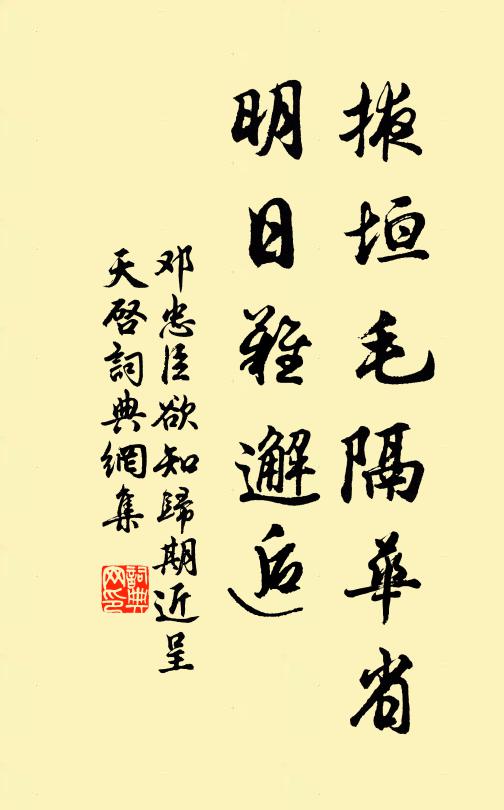 掖垣毛隔華省
明日難邂逅
邓忠臣欲知歸期近呈
天啓詞典網集
詞典网印